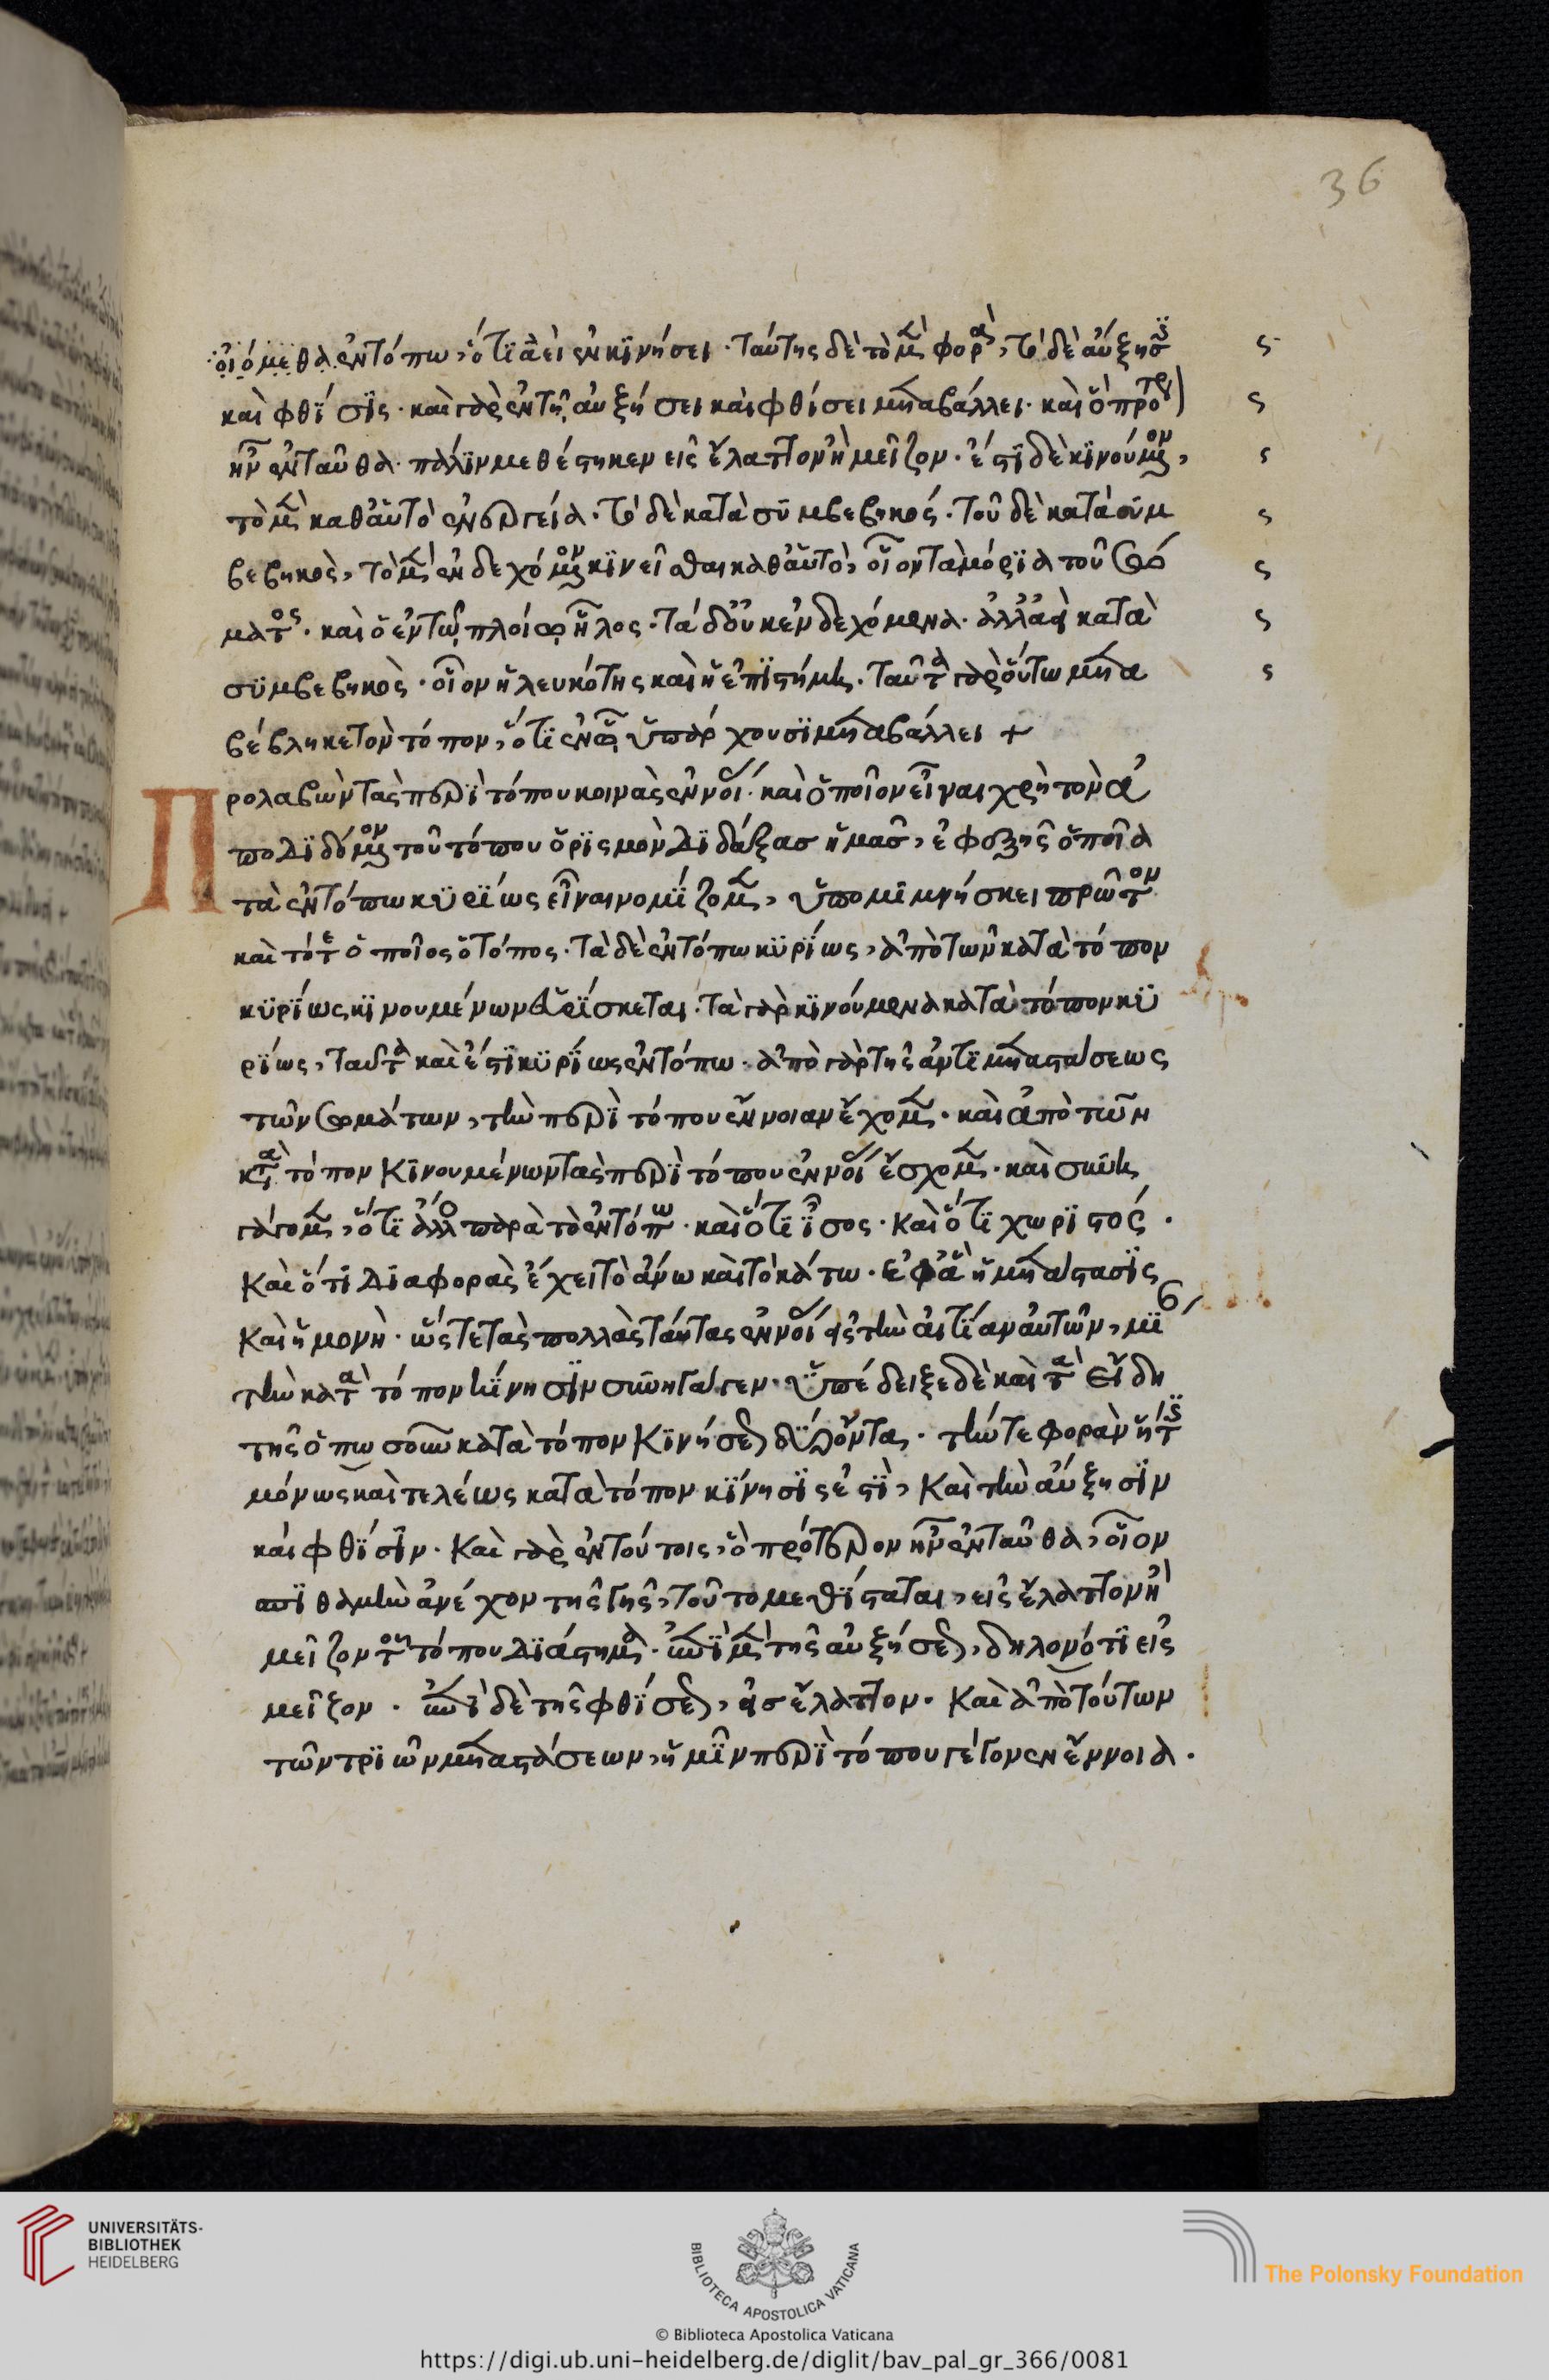 36
οἰόμεθα ἐν τόπω, ὅτι ἀεὶ ἐν κινήσει · ταύτης δὲ τὸ μὲν φορὰ, τὸ δὲ αὔξησις
καὶ φθίσις · καὶ γὰρ ἐν τῆ αὐξήσει καὶ φθίσει μεταβάλλει · καὶ ὃ πρότερον
ἦν ἐνταῦθα · πάλιν μεθέστηκεν εἰς ἔλαττον ἢ μεῖζον · ἔστι δὲ κινούμενον,
τὸ μὲν καθ' αὑτὸ ἐνεργεία · τὸ δὲ κατὰ συμβεβηκός · τοῦ δὲ κατὰ συμ
βεβηκὸς, τὸ μὲν ἐνδεχόμενον κινεῖσθαι καθ' αὑτὸ, οἷον τὰ μόρια τοῦ σώ
ματος · καὶ ὁ ἐν τῶ πλοίω ἧλος · τὰ δ' οὐκ ἐνδεχόμενα · ἀλλ' ἀεὶ κατὰ
συμβεβηκὸς · οἷον ἡ λευκότης καὶ ἡ ἐπιστήμη · ταῦτα γὰρ οὕτω μετα
βέβληκε τὸν τόπον, ὅτι ἐν ὧ ὑπάρχουσι μεταβάλλει +
Προλαβὼν τὰς περὶ τόπου κοινὰς ἐννοίας · καὶ ὁποῖον εἶναι χρὴ τὸν ἀ
ποδιδόμενον τοῦ τόπου ὁρισμὸν διδάξας ἡμᾶς, ἐφεξῆς ὁποῖα
τὰ ἐν τόπω κυρίως εἶναι νομίζομεν, ὑπομιμνήσκει πρῶτον
καὶ τότε ὁποῖος ὁ τόπος · τὰ δὲ ἐν τόπω κυρίως, ἀπὸ τῶν κατὰ τόπον
κυρίως κινουμένων εὑρίσκεται · τὰ γὰρ κινούμενα κατὰ τόπον κυ
ρίως, ταῦτα καὶ ἔστι κυρίως ἐν τόπω · ἀπὸ γὰρ τῆς ἀντιμεταστάσεως
τῶν σωμάτων, τὴν περὶ τόπου ἔννοιαν ἔχομεν · καὶ ἀπὸ τῶν
κατὰ τόπον κινουμένων τὰς περὶ τόπου ἐννοίας ἔσχομεν · καὶ συνη
γάγομεν, ὅτι ἄλλο παρὰ τὸ ἐν τόπω · καὶ ὅτι ἴσος · καὶ ὅτι χωριστός ·
καὶ ὅτι διαφορὰς ἔχει τὸ ἄνω καὶ τὸ κάτω · ἐφ' ἃ ἡ μετάστασις
καὶ ἡ μονὴ · ὥστε τὰς πολλὰς ταύτας ἐννοίας εἰς τὴν αἰτίαν αὐτῶν,
τὴν κατὰ τόπον κίνησιν συνήγαγεν · ὑπέδειξε δὲ καὶ τὰ εἴδη
τῆς ὁπωσοῦν κατὰ τόπον κινήσεως τήν τε φορὰν ἥτις
μόνως καὶ τελέως κατὰ τόπον κίνησις ἐστὶ, καὶ τὴν αὔξησιν
καὶ φθίσιν · καὶ γὰρ ἐν τούτοις, ὃ πρότερον ἦν ἐνταῦθα, οἷον
σπιθαμὴν ἀνέχον τῆς γῆς, τοῦτο μεθίσταται, εἰς ἔλαττον ἢ
μεῖζον τοῦ τόπου διάστημα · ἐπὶ μὲν τῆς αὐξήσεως, δηλονότι εἰς
μεῖζον · ἐπὶ δὲ τῆς φθίσεως, εἰς ἔλαττον · καὶ ἀπὸ τούτων
τῶν τριῶν μεταστάσεων, ἡμῖν περὶ τόπου γέγονεν ἔννοια ·
UNIVERSITÄTS-
BIBLIOTHEK
HEIDELBERG
BIBLIOTECA APOSTOLICA VATICANA
The Polonsky Foundation
© Biblioteca Apostolica Vaticana
https://digi.ub.uni-heidelberg.de/diglit/bav_pal_gr_366/0081